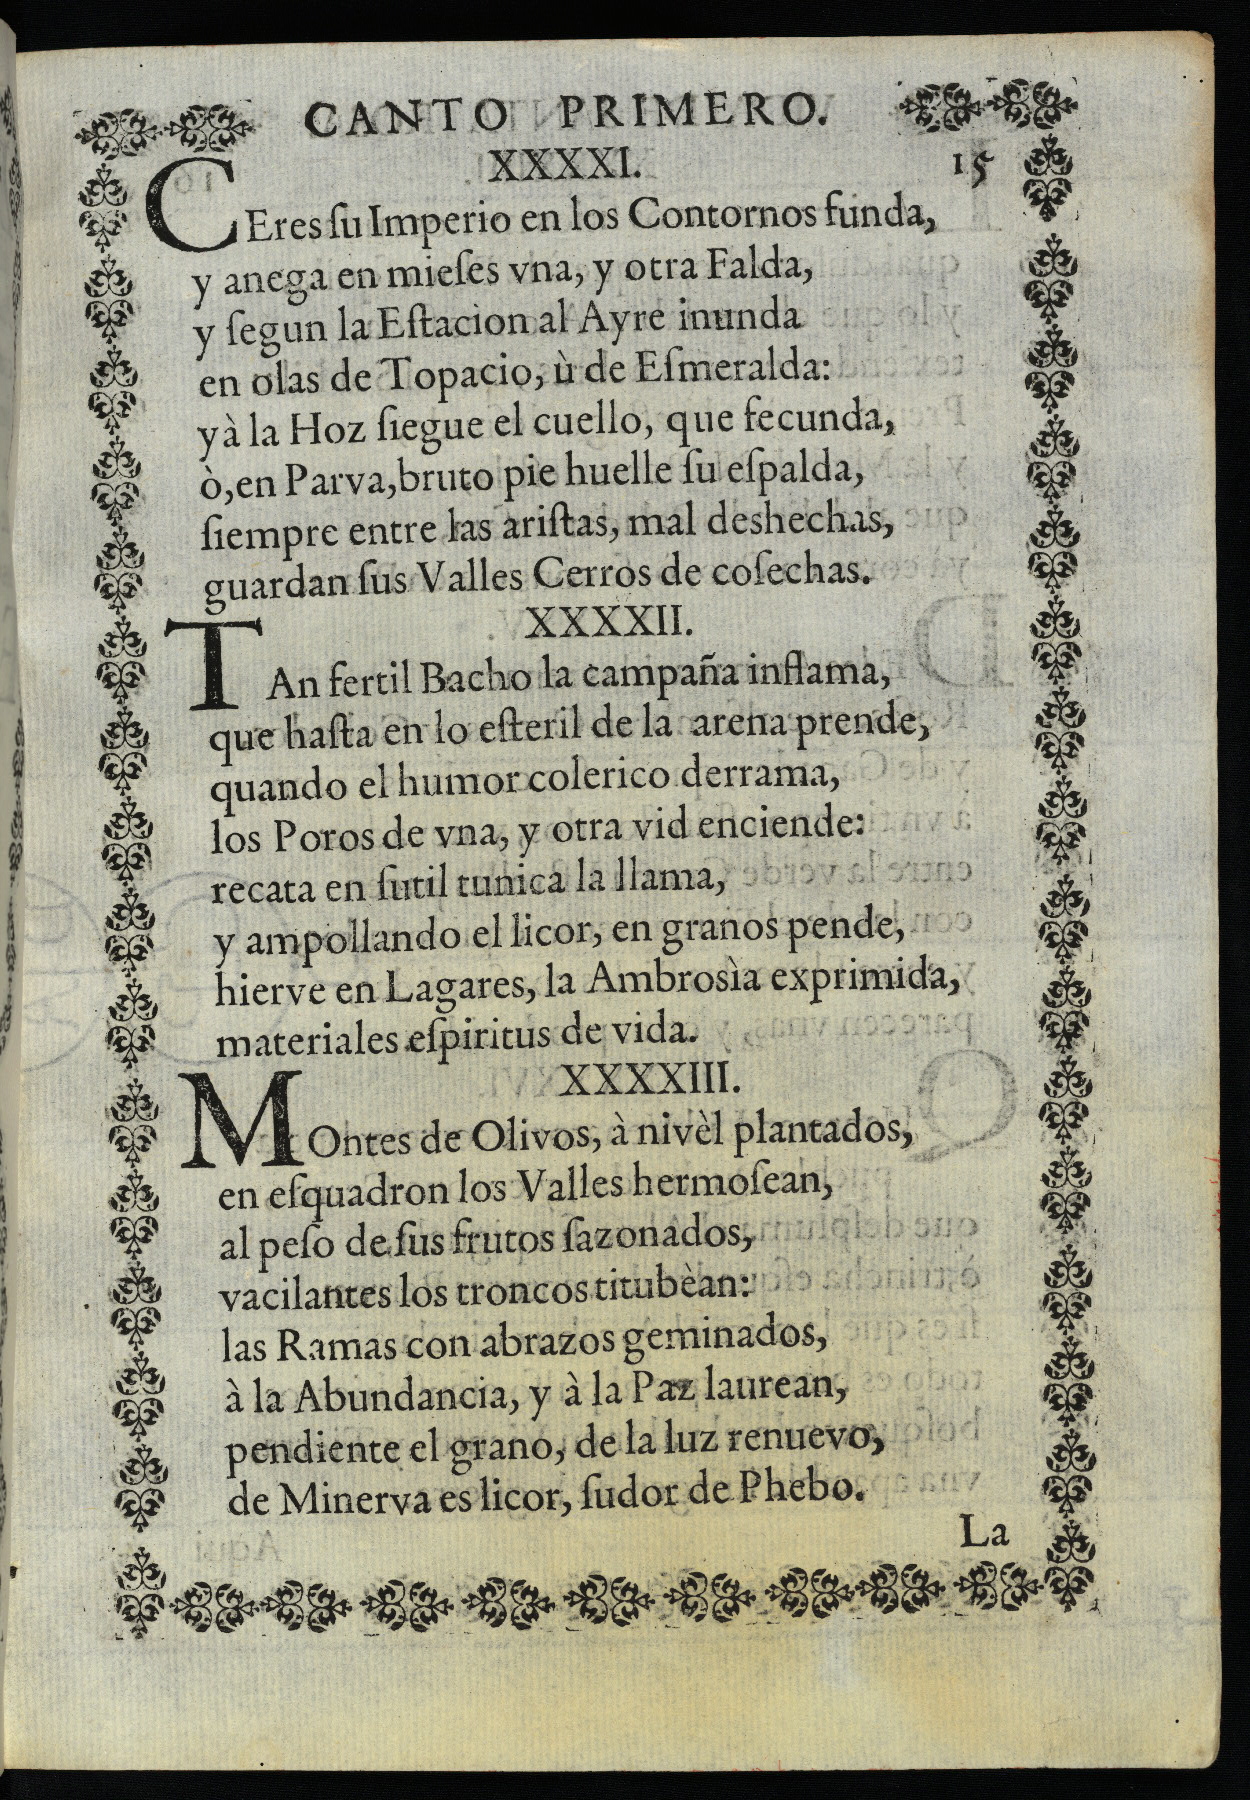 CANTO PRIMERO.
XXXXI. 15
CEres ſu Imperio en los Contornos funda,
y anega en mieſes vna, y otra Falda,
y ſegun la Eſtacion al Ayre inunda
en olas de Topacio, ù de Eſmeralda:
y à la Hoz ſiegue el cuello, que fecunda,
ò, en Parva, bruto pie huelle ſu eſpalda,
ſiempre entre las ariſtas, mal deshechas,
guardan ſus Valles Cerros de coſechas.
XXXXII.
TAn fertil Bacho la campaña inflama,
que haſta en lo eſteril de la arena prende,
quando el humor colerico derrama,
los Poros de vna, y otra vid enciende:
recata en ſutil tunica la llama,
y ampollando el licor, en granos pende,
hierve en Lagares, la Ambrosìa exprimida,
materiales eſpiritus de vida.
XXXXIII.
MOntes de Olivos, à nivèl plantados,
en eſquadron los Valles hermoſean,
al peſo de ſus frutos ſazonados,
vacilantes los troncos titubèan:
las Ramas con abrazos geminados,
à la Abundancia, y à la Paz laurean,
pendiente el grano, de la luz renuevo,
de Minerva es licor, ſudor de Phebo.
La